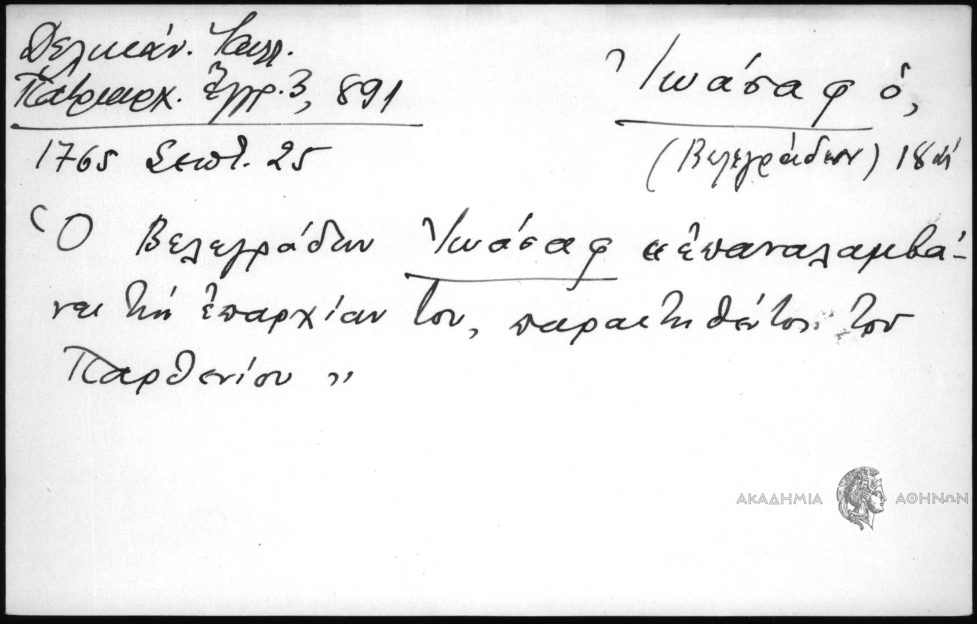 Δελικάν. Καλλ.
Πατριαρχ. Ἔγγρ. 3, 891
1765 Σεπτ. 25
Ἰωάσαφ ὁ,
(Βελεγράδων) 18
Ὁ Βελεγράδων Ἰωάσαφ «ἐπαναλαμβά-
νει τὴν ἐπαρχίαν του, παραιτηθέντος τοῦ
Παρθενίου»
ΑΚΑΔΗΜΙΑ ΑΘΗΝΩΝ